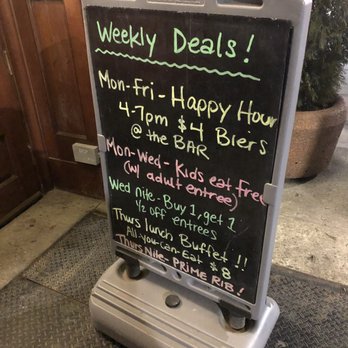 Weekly Deals!
Mon-Fri - Happy Hour
4-7pm $4 Biers
@ the BAR
Mon-Wed - Kids eat free
(w/ adult entree)
Wed nite - Buy 1, get 1
1/2 off entrees
Thurs lunch Buffet!!
All-you-can-Eat $8
Thurs Nite - PRIME RIB!